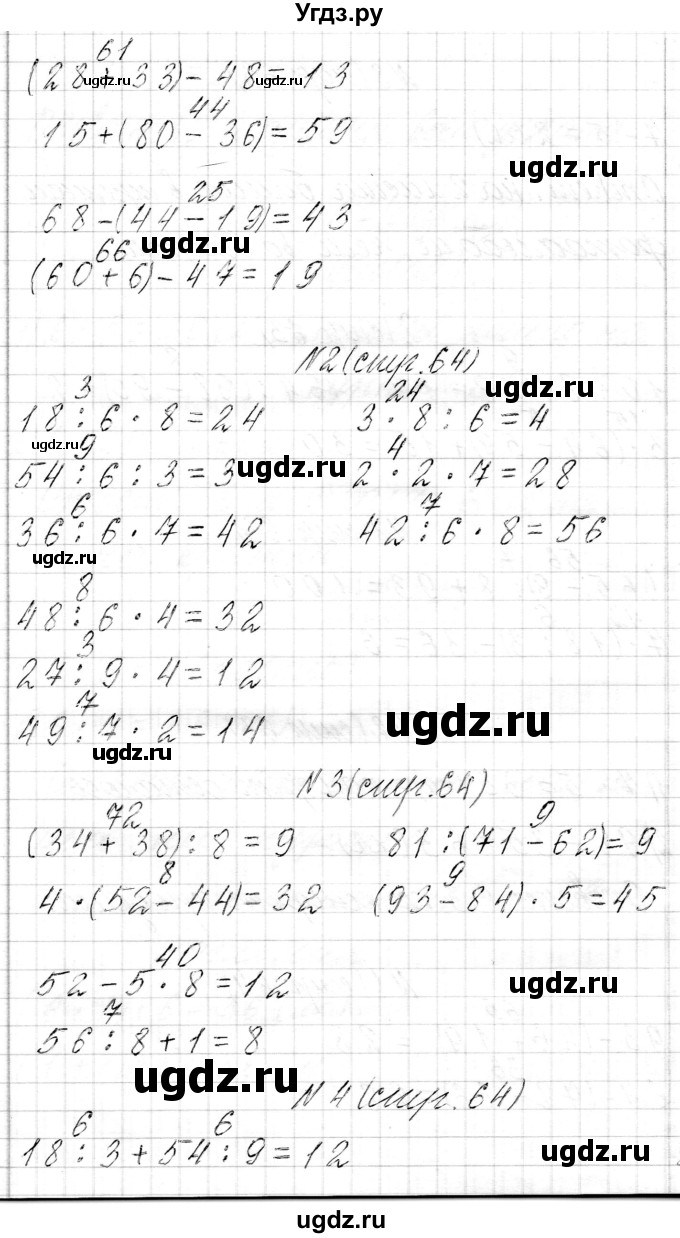 Угдз.ру
61
(28+33)-48=13
44
15+(80-36)=59
ugdz.ru
25
68-(44-19)=43
ugdz.ru
66
(60+6)-47=19
N2(стр.64)
3 24
18:6·8=24 3·8:6=4
ugdz.ru
9 4
54:6:3=3 2·2·7=28
ugdz.ru
6 7
36:6·7=42 42:6·8=56
ugdz.ru
8
48:6·4=32
3
27:9·4=12
7
49:7·2=14
ugdz.ru
ugdz.ru
N3(стр.64)
72 9
(34+38):8=9 81:(71-62)=9
8 9
4·(52-44)=32 (93-84)·5=45
40
52-5·8=12
ugdz.ru
7
56:8+1=8
ugdz.ru
N4(стр.64)
6 6
18:3+54:9=12
ugdz.ru
ugdz.ru